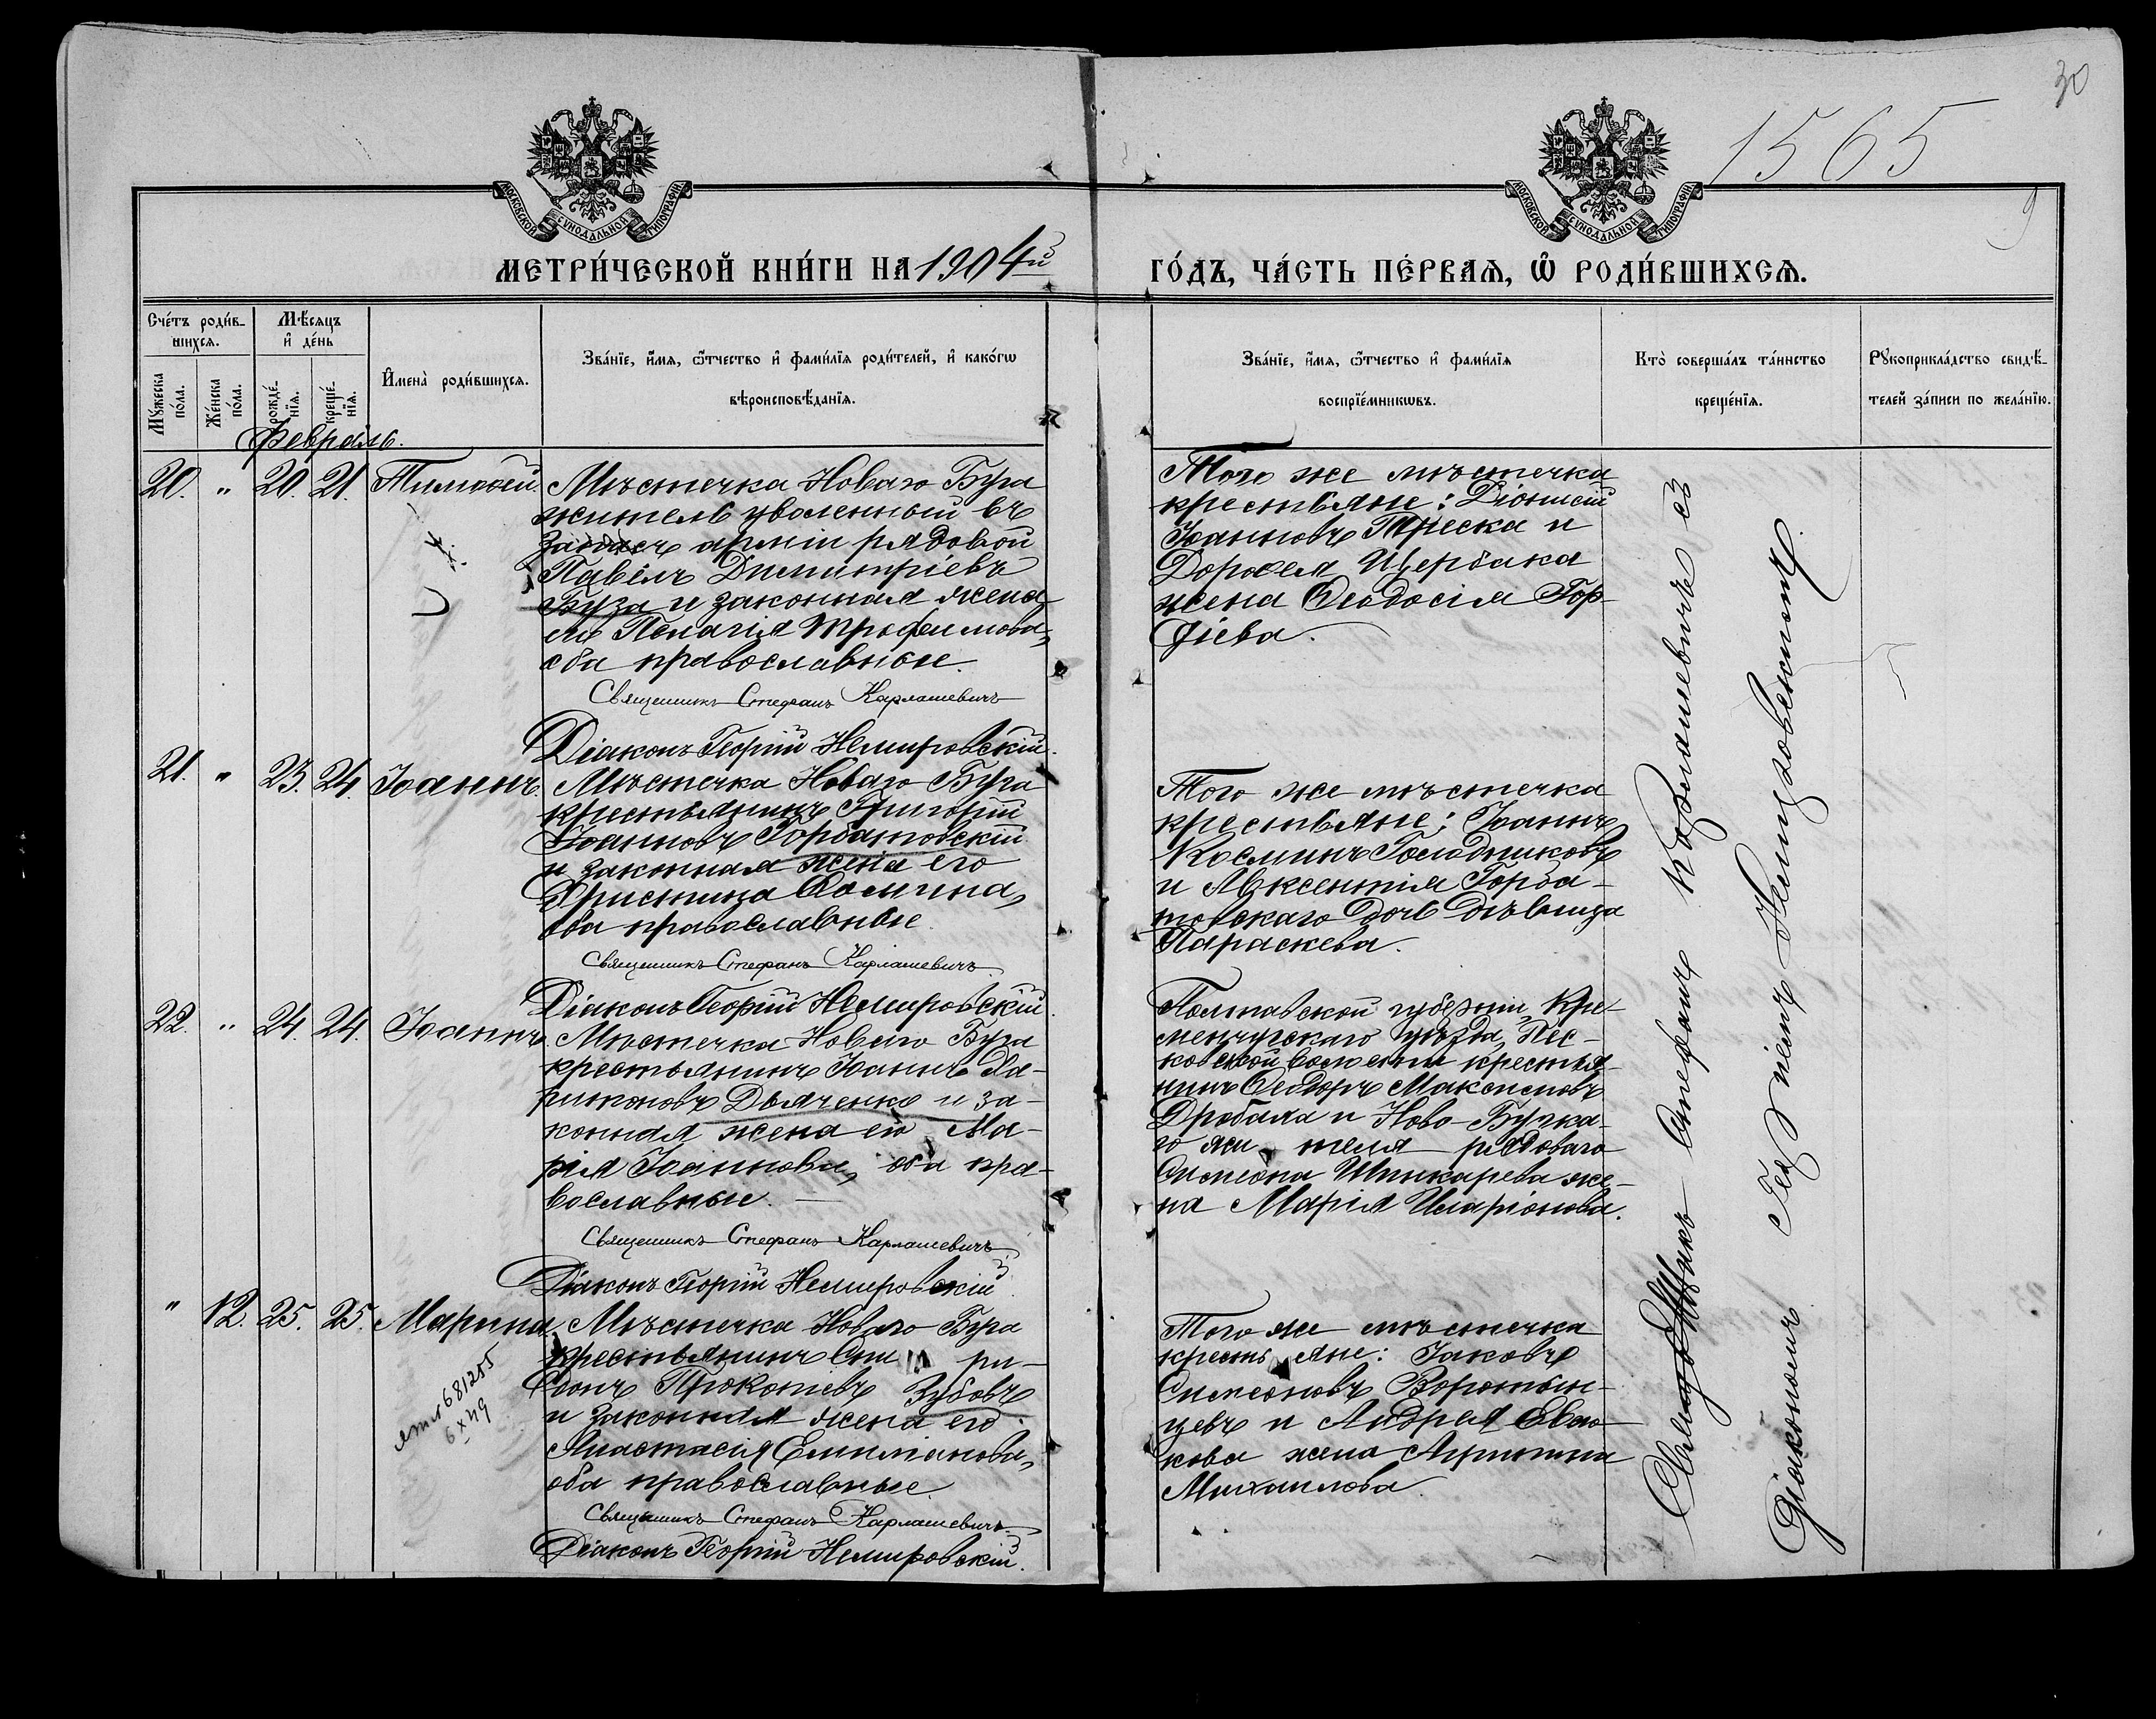 30
1565
9
МОСКОВСКОЙ СѴНОДАЛЬНОЙ ТИПОГРАФІИ
МОСКОВСКОЙ СѴНОДАЛЬНОЙ ТИПОГРАФІИ
МЕТРИ́ЧЕСКОЙ КНИ́ГИ НА 1904й ГО́ДЪ, ЧА́СТЬ ПЕ́РВАѦ, Ѡ҆ РОДИ́ВШИХСѦ.
Сче́тъ роди́в-
шихсѧ.
Мꙋ́жеска по́ла.
Же́нска по́ла.
Мѣ́сѧцъ
и҆ де́нь
рожде́-нїѧ.
креще́-нїѧ.
И҆мена̀ роди́вшихсѧ.
Зва́нїе, и҆́мѧ, ѻ҆́тчество и҆ фами́лїѧ роди́телей, и҆ како́гѡ
вѣроисповѣ́данїѧ.
Зва́нїе, и҆́мѧ, ѻ҆́тчество и҆ фами́лїѧ
воспрїе́мникѡвъ.
Кто̀ соверша́лъ та́инство
креще́нїѧ.
Рꙋкоприкла́дство свидѣ́-
телей за́писи по жела́нїю.
Февраль.
20. " 20. 21. Тимоѳей.
Мѣстечка Новаго Буга
житель уволенный въ
запасъ арміи рядовой
Павелъ Димитріевъ
Буза и законная жена
его Пелагія Трофимова,
оба православные.
Священникъ Стефанъ Карлашевичъ
Діаконъ Георгій Немировскій.
Того же мѣстечка
крестьяне: Діонисій
Іоанновъ Треска и
Дороѳея Щербака
жена Ѳеодосія Гор-
діева.
21. " 23. 24. Іоаннъ.
Мѣстечка Новаго Буга
крестьянинъ Григорій
Іоанновъ Горбатовскій
и законная жена его
Христина Ѳомина,
оба православные.
Священникъ Стефанъ Карлашевичъ
Діаконъ Георгій Немировскій.
Того же мѣстечка
крестьяне: Іоаннъ
Косминъ Голодниковъ
и Авксентія Горба-
товскаго дочь дѣвица
Параскева.
22. " 24. 24. Іоаннъ.
Мѣстечка Новаго Буга
крестьянинъ Іоаннъ
Дьяченко и за-
конная жена его Ма-
рія Іоаннова, оба пра-
вославные.
Священникъ Стефанъ Карлашевичъ
Діаконъ Георгій Немировскій.
Полтавской губерніи, Кре-
менчугскаго уѣзда, Пес-
ковской волости крестья-
нинъ Ѳеодоръ Максимовъ
Дробаха и Ново-Бугска-
го жителя рядоваго
Симеона Шинкарева же-
на Марія Иларіонова.
" 12. 25. 25. Марина.
681255
Мѣстечка Новаго Буга
крестьянинъ Спири-
донъ Прокопіевъ Зубовъ
и законная жена его
Анастасія Емиліанова,
оба православные.
Священникъ Стефанъ Карлашевичъ
Діаконъ Георгій Немировскій.
Того же мѣстечка
крестьяне: Іаковъ
Симеоновъ Воротын-
цевъ и Андрея
жена
Михаилова.
Священникъ Стефанъ Карлашевичъ съ
Діакономъ Георгіемъ Немировскимъ.